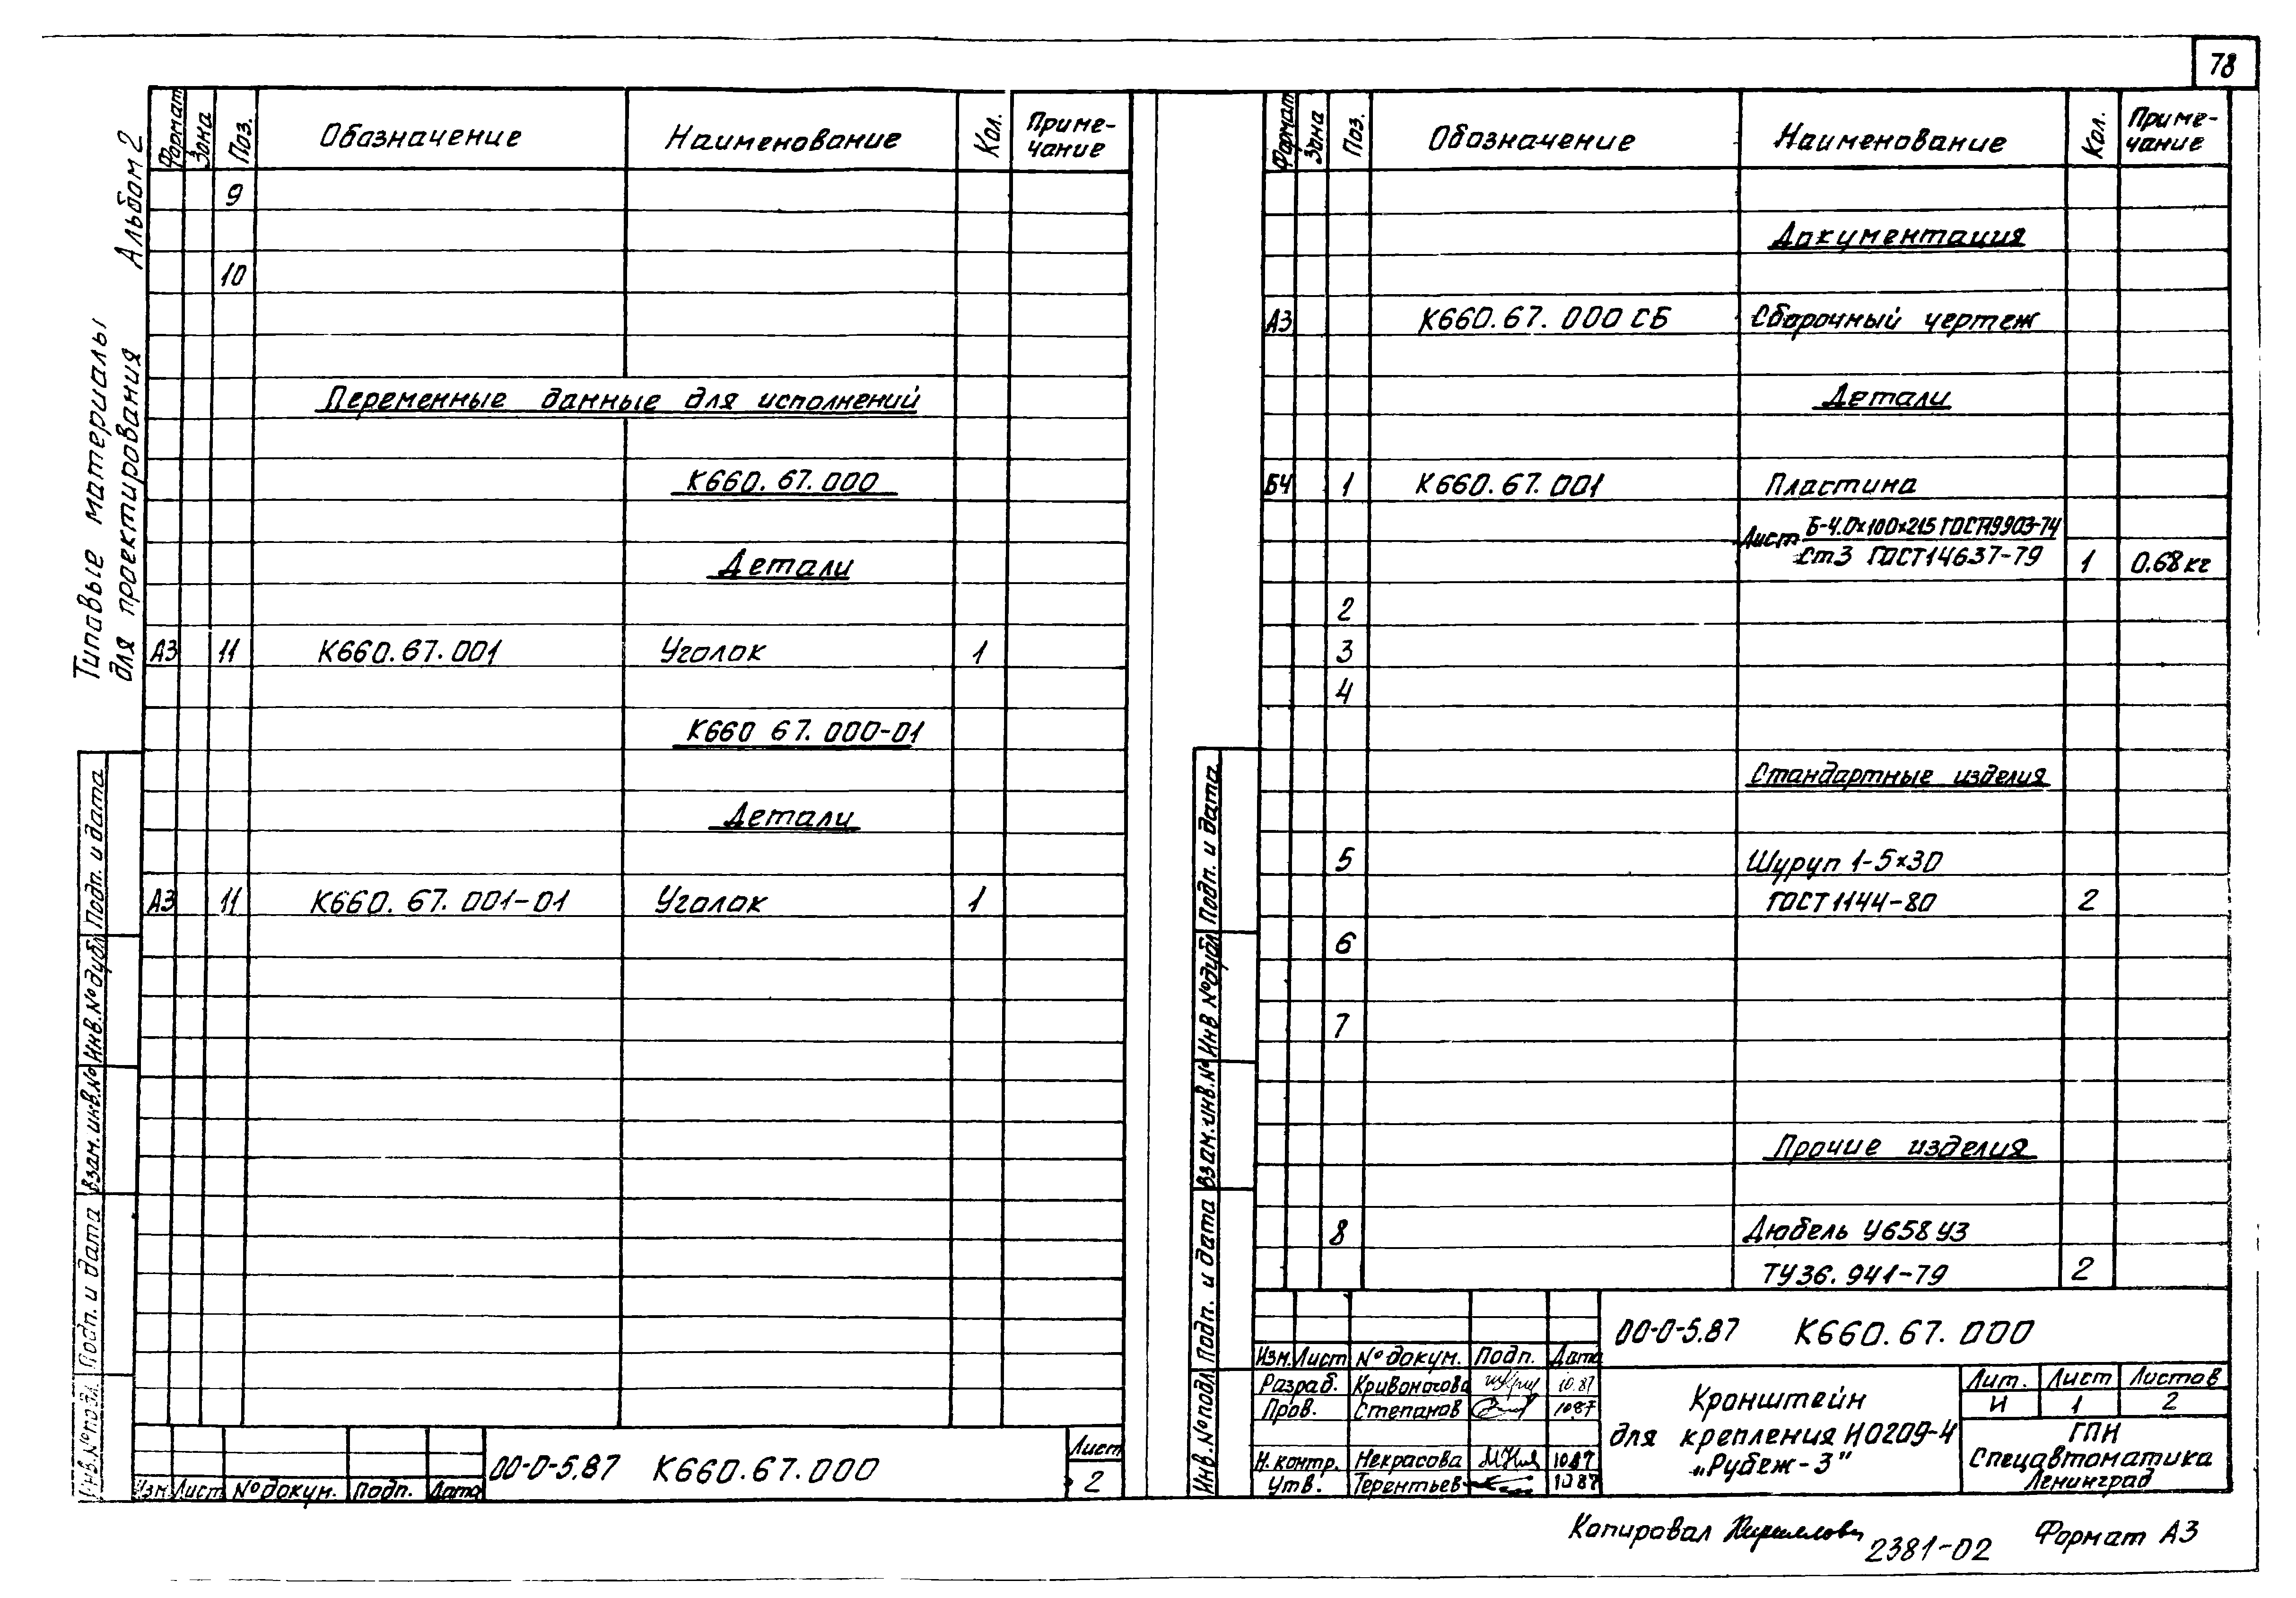 78
Типовые материалы для проектирования
Альбом 2
Формат Зона Поз. Обозначение Наименование Кол. Приме-чание
9
10
Переменные данные для исполнений
К660.67.000
Детали
А3 11 К660.67.001 Уголок 1
К660 67.000-01
Детали
А3 11 К660.67.001-01 Уголок 1
Подп. и дата
Инв.№ дубл
Взам.инв.№
Подп. и дата
Инв.№ подл.
Изм Лист № докум. Подп. Дата
00-0-5.87 К660.67.000
Лист
2
Формат Зона Поз. Обозначение Наименование Кол. Приме-чание
Документация
А3 К660.67.000 СБ Сборочный чертеж
Детали
БЧ 1 К660.67.001 Пластина
Лист Б-4.0х100х215 ГОСТ19903-74
Ст3 ГОСТ14637-79 1 0.68 кг
2
3
4
Стандартные изделия
5 Шуруп 1-5х30
ГОСТ 1144-80 2
6
7
Прочие изделия
8 Дюбель У658 У3
ТУ36.941-79 2
Подп. и дата
Инв № дубл
Взам.инв.№
Подп. и дата
Инв.№ подл
00-0-5.87 К660.67.000
Изм. Лист № докум. Подп. Дата
Разраб. Кривоногова 10.87
Пров. Степанов 10.87
Н.контр. Некрасова 10.87
Утв. Терентьев 10 87
Кронштейн
для крепления НО209-4
„Рубеж-3"
Лит. Лист Листов
И 1 2
ГПИ
Спецавтоматика
Ленинград
Копировал Кириллова
2381-02
Формат А3